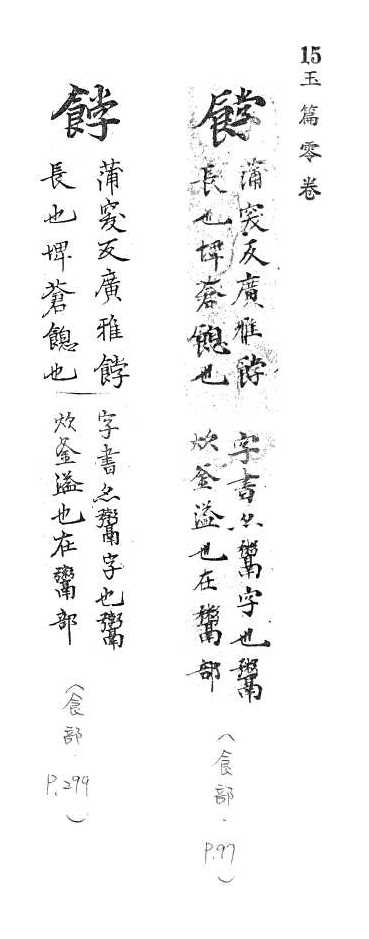 15玉篇零卷
餑
蒲突反廣雅餑
長也埤蒼䭒也
字書亦字也
炊釜溢也在部
(食部.P.97)
餑
蒲突反廣雅餑
長也埤蒼䭒也
字書亦字也
炊釜溢也在部
(食部.P.299)